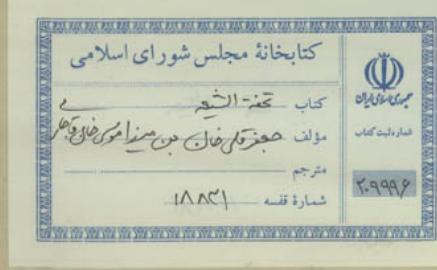 کتابخانهٔ مجلس شورای اسلامی
کتاب تحفة الشیعه
مؤلف جعفر قلی خان بن میرزا موسی خان قاجار
مترجم
شمارهٔ قفسه ۱۸۸۳۱
جمهوری اسلامی ایران
شماره ثبت کتاب
۲۰۹۹۹۶